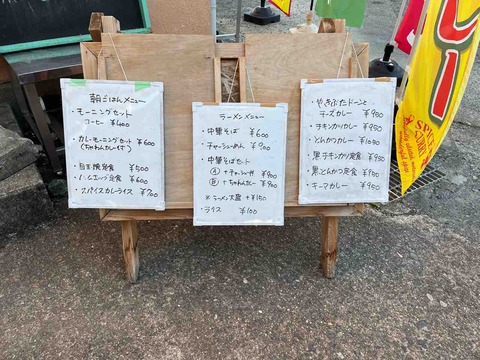 朝ごはんメニュー
・モーニングセット
コーヒー ¥400
・カレーモーニングセット ¥600
(ちゃわんカレー付)
・目玉焼定食 ¥500
・ハムエッグ定食 ¥600
・スパイスカレーライス ¥700
ラーメンメニュー
・中華そば ¥600
・チャーシューめん ¥900
・中華そばセット
Ⓐ +チャーハン付
Ⓑ +ちゃわんカレー
※ ラーメン大盛 +¥150
・ライス ¥100
・やきぶたドーンと
チーズカレー
・チキンカツカレー ¥950
・とんかつカレー
・黒チキンカツ定食
・黒とんかつ定食
・キーマカレー ¥950